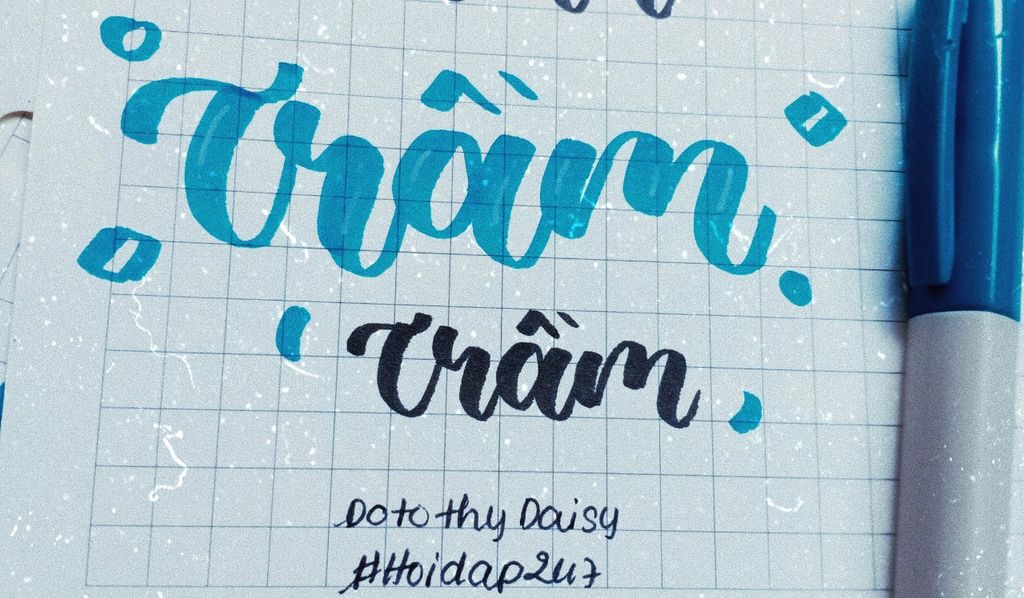 trầm
trầm
Dotothy Daisy
#Hoidap247